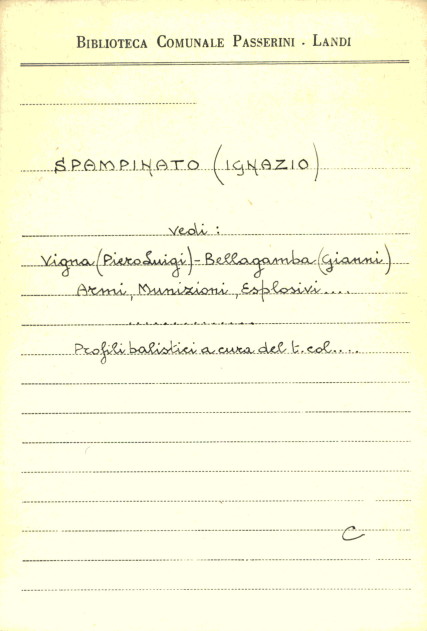 BIBLIOTECA COMUNALE PASSERINI - LANDI
SPAMPINATO (IGNAZIO)
vedi :
Vigna (PieroLuigi) - Bellagamba (Gianni)
Armi, Munizioni, Esplosivi....
.............
Profili balistici a cura del t. col....
C